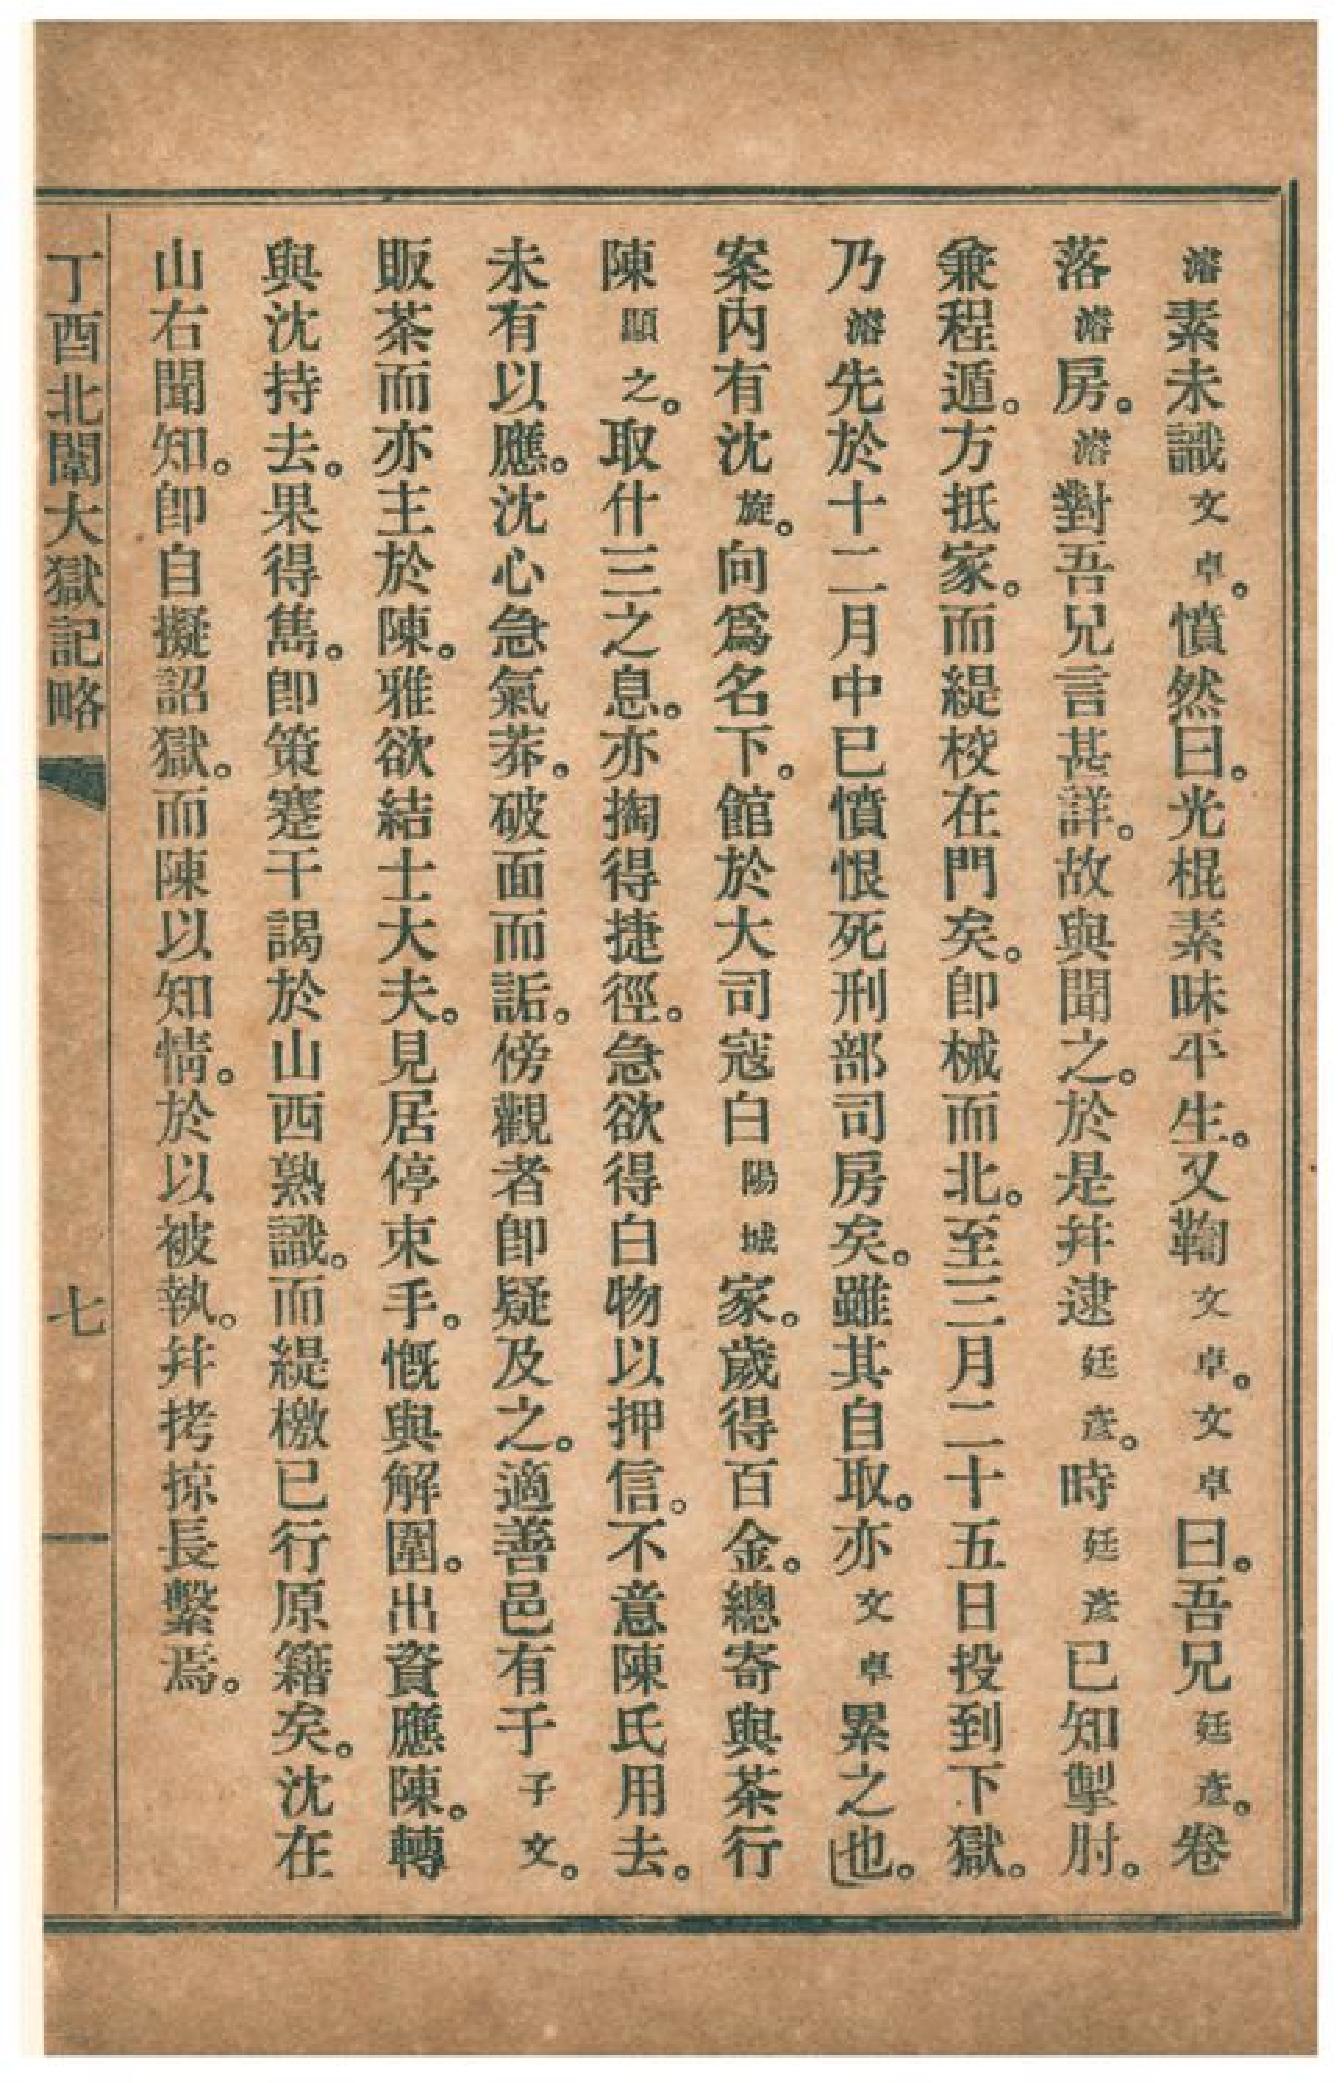 濬素未識文卓。憤然曰。光棍素昧平生。又鞫文卓。文卓曰。吾兄廷彥。卷
落濬房。濬對吾兄言甚詳。故與聞之。於是幷逮廷彥。時廷彥已知掣肘。
兼程遁。方抵家。而緹校在門矣。卽械而北。至三月二十五日投到下獄。
乃濬先於十二月中已憤恨死刑部司房矣。雖其自取。亦文卓累之也。
案內有沈旋。向爲名下。館於大司寇白陽城家。歲得百金。總寄與茶行
陳顯之。取什三之息。亦掏得捷徑。急欲得白物以押信。不意陳氏用去。
未有以應。沈心急氣莽。破面而詬。傍觀者卽疑及之。適善邑有于子文。
販茶而亦主於陳。雅欲結士大夫。見居停束手。慨與解圍。出資應陳。轉
與沈持去。果得雋。卽策蹇干謁於山西熟識。而緹檄已行原籍矣。沈在
山右聞知。卽自擬詔獄。而陳以知情。於以被執。幷拷掠長繫焉。
丁酉北闈大獄記略
七